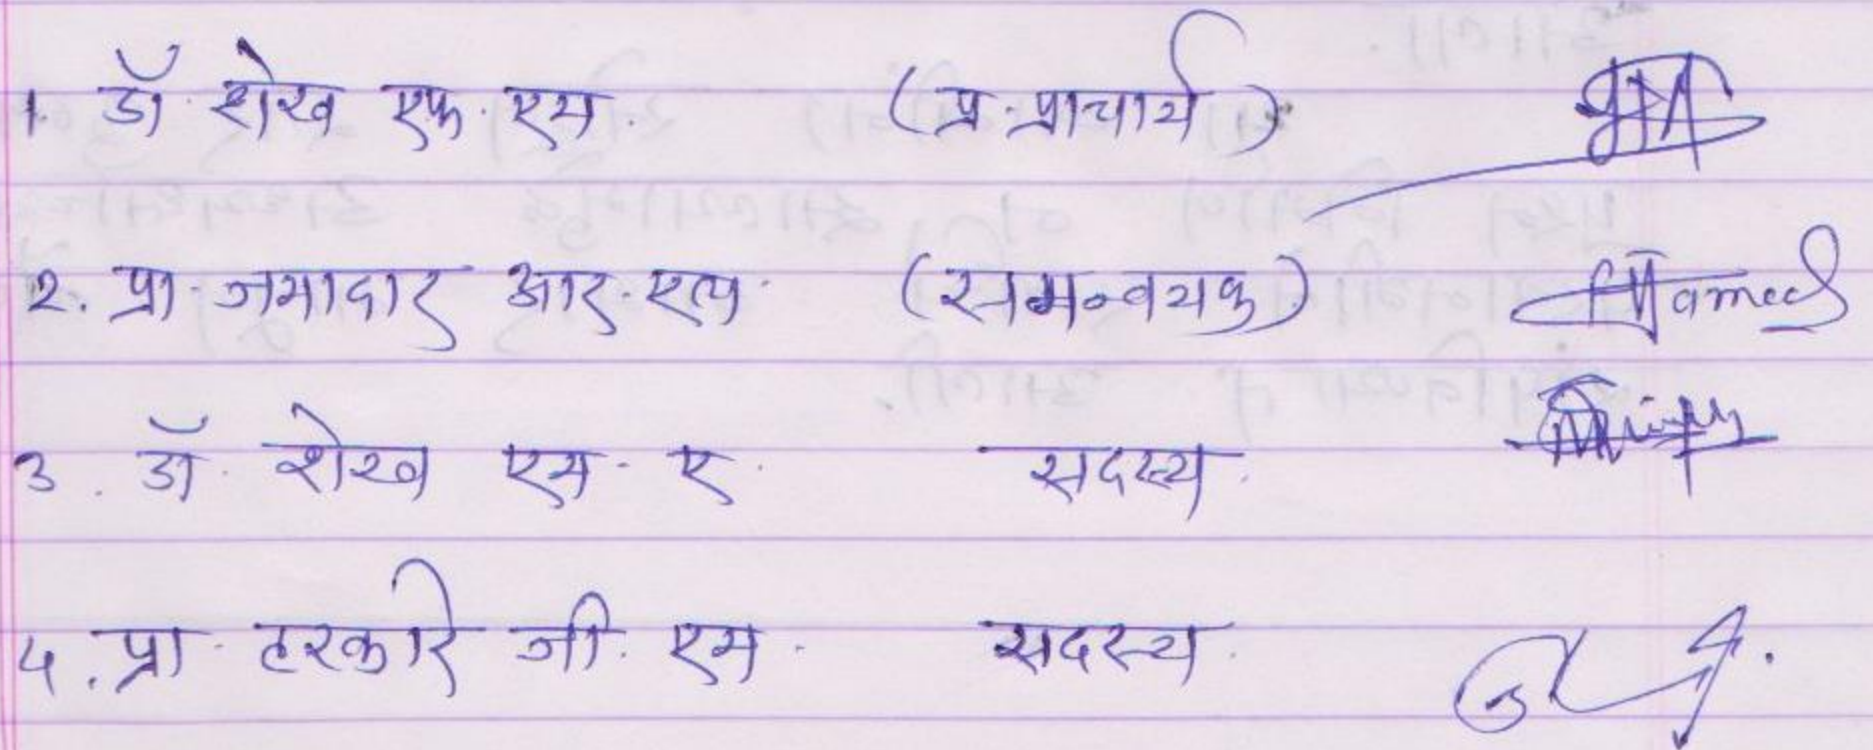 1. डॉ. शेख एफ. एम. (प्र. प्राचार्य)
2. प्रा. जमादार आर. एल. (समन्वयक)
3. डॉ. शेख एम. ए. सदस्य.
4. प्रा. हरकारे जी. एम. सदस्य.